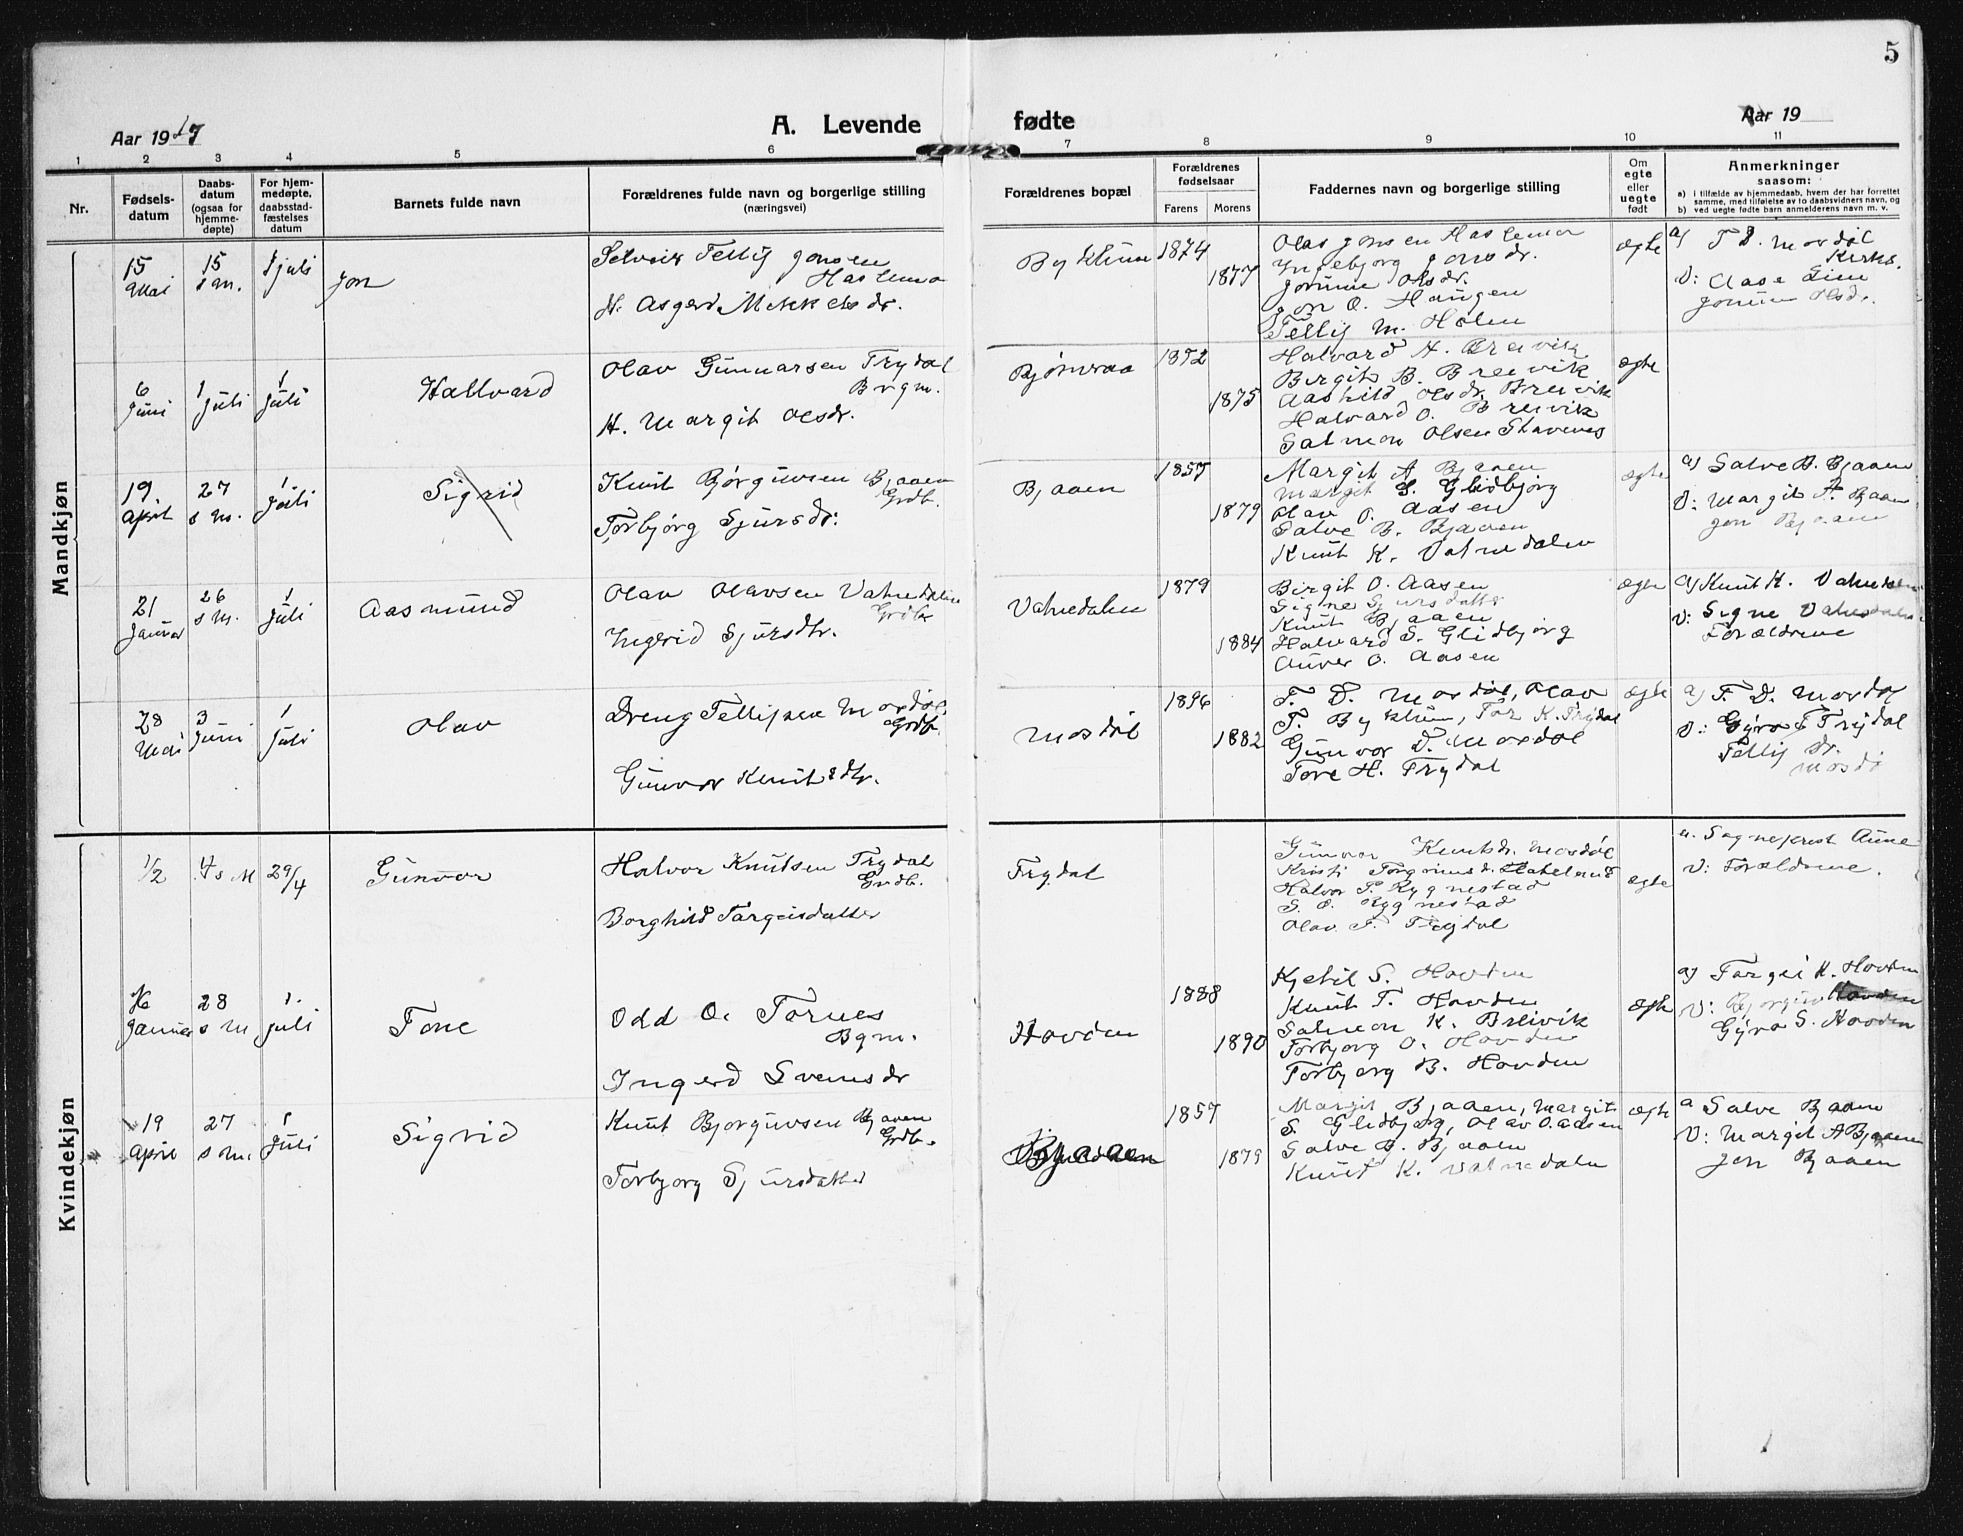 5
Aar 1917
A. Levende fødte
Aar 19
1 2 3 4 5 6 7 8 9 10 11
Nr.
Fødsels-
datum
Daabs-
datum
(ogsaa for
hjemme-
døpte)
For hjem-
medøpte,
daabsstad-
fæstelses
datum
Barnets fulde navn
Forældrenes fulde navn og borgerlige stilling
(næringsvei)
Forældrenes bopæl
Forældrenes
fødselsaar
Farens Morens
Faddernes navn og borgerlige stilling
Om
egte
eller
uegte
født
Anmerkninger
saasom:
a) i tilfælde av hjemmedaab, hvem der har forrettet
samme, med tilføielse av to daabsvidners navn, og
b) ved uegte fødte barn anmelderens navn m. v.
Mandkjøn
15
Mai
15
s m.
1 juli
Jon
Tellif Jonsen
Haslemo
H. Asgerd Mikkelsdr.
Byklum
1874
1877
Olav Jonsen Haslemo
Ingebjorg Jonsdr.
Jorunn Olsdr.
Jon O. Haugen
Tellif M. Holen
ægte
a) T D. Mosdøl
Kirks.
V: Aase Lien
Jorunn Olsdr.
6
Juni
1
Juli
1
Juli
Hallvard
Olav Gunnarsen Trydal
Brgm.
H. Margit Olsdr.
Bjørnaraa
1872
1875
Halvard H. Breivik
Birgit B. Breivik
Aashild Olsdr. Breivik
Halvard O. Breivik
Salmon Olsen Stavenes
ægte
19
April
27
s m.
1
Juli
Sigrid
Knut Bjørguvsen Bjaaen
Grdb.
Torbjørg Sjursdr.
Bjaaen
1857
1879
Margit A Bjaaen
Margit S. Glidbjørg
Olav O. Aasen
Salve B. Bjaaen
Knut K. Vatnedalen
ægte
a) Salve B. Bjaaen
V: Margit A. Bjaaen
Jon Bjaaen
21
Januar
26
s m.
1
Juli
Aasmund
Olav Olavsen Vatnedalen
Grdb
Ingerid Sjursdtr.
Vatnedalen
1879
1884
Birgit O. Aasen
Signe Sjursdatter
Knut Bjaaen
Halvard S. Glidbjørg
Anver O. Aasen
ægte
a) Knut K. Vatnedalen
V: Signe Vatnedalen
Forældrene
28
Mai
3
Juni
1
Juli
Olav
Dreng Tellifsen Mosdøl
Grdb.
Gunvor Knutsdtr.
Mosdøl
1896
1882
T. D. Mosdøl, Olav
T. Byklum, Tor K. Trydal
Gunvor D. Mosdøl
Tore H. Trydal
ægte
a) T. D. Mosdøl
V: Gyro T Trydal
Tellif Dr.
Mosdø
Kvindekjøn
1/2
4 s M
29/4
Gunvor
Halvor Knutsen Trydal
Grdb.
Borghild Targeisdatter
Trydal
Gunvor Knutsdr. Mosdøl
Kristi Torgrimsd.
Halvor T. Rygnestad
S. O. Rygnestad
Olav T. Trydal
ægte
a. Sogneprest Aune
V: Forældrene.
16
Januar
28
s m
1.
juli
Tone
Odd O. Tornes
Bgm.
Ingerd Svensdr
Hovden
1888
1890
Kjetil S. Hovden
Knut T. Hovden
Salmon K. Breivik
Torbjorg O. Hovden
Torbjorg B. Hovden
ægte
a) Targei K. Hovden
V: Bjorguv Hovden
Gyro S. Hovden
19
April
27
s m.
1
Juli
Sigrid
Knut Bjorguvsen Bjaaen
Grdb.
Torbjorg Sjursdatter
Bjaaen
1857
1879
Margit Bjaaen, Margit
S. Glidbjørg, Olav O Aasen
Salve B. Bjaaen
Knut K. Vatnedalen
ægte
a Salve Bjaaen
V: Margit A Bjaaen
Jon Bjaaen